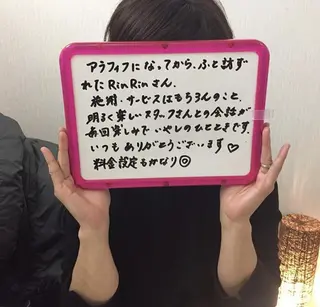 アラフィフになってから、ふと訪ず
れたRinRinさん。
施術・サービスはもちろんのこと、
明るく楽しいスタッフさんとの会話が
毎回楽しみでいやしのひとときです。
いつもありがとうございます♡
料金設定もかなり◎